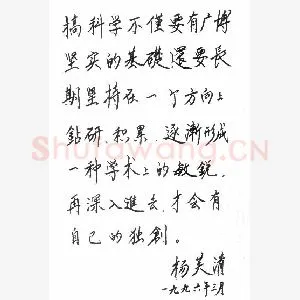 搞科学不僅要有广博
坚实的基礎還要長
期坚持在一个方向上
鉆研、积累、逐漸形成
一种学术上的敏銳，
再深入進去，才会有
自己的独創。
杨芙清
一九九六年三月
Shufawang.CN